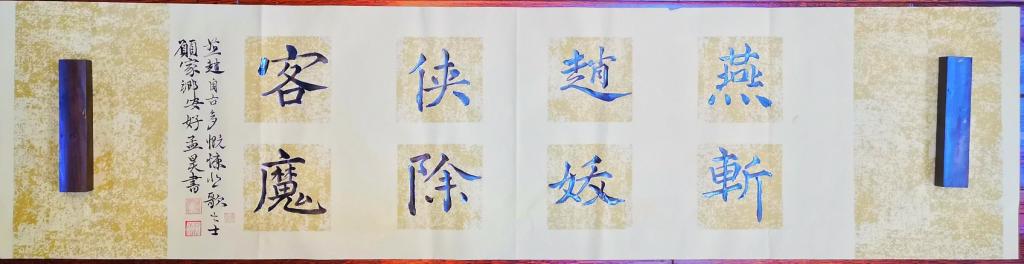 燕趙侠客
斬妖除魔
燕趙自古多慨慷悲歌之士
願家鄉安好孟昊書